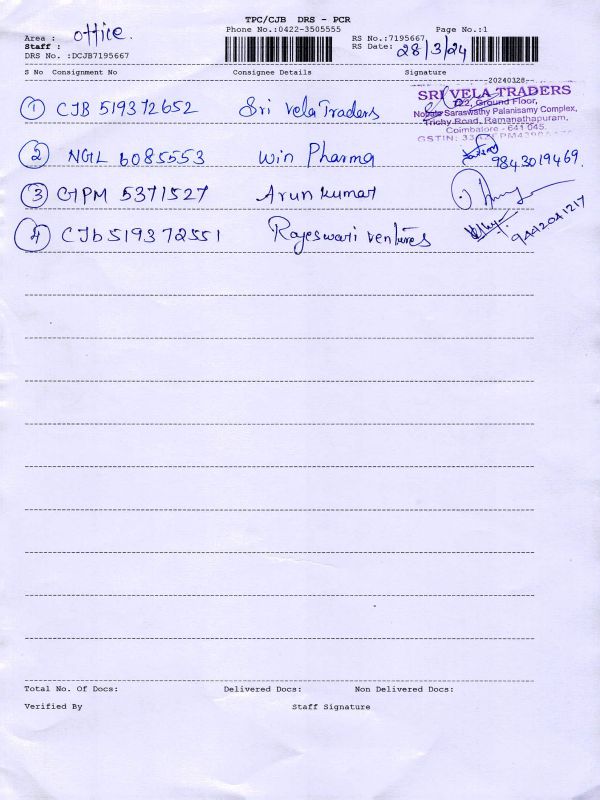 TPC/CJB DRS - PCR
Area : office. Phone No.:0422-3505555 Page No.:1
Staff : RS No.:7195667
DRS No. :DCJB7195667 RS Date: 28/3/24
S No Consignment No Consignee Details Signature
20240328
SRI VELA TRADERS
122, Ground Floor,
Saraswathy Palanisamy Complex,
Trichy Road, Ramanathapuram,
Coimbatore - 641 045.
GSTIN:
1 CJB 519372652 Sri Vela Traders
2 NGL 6085553 Win Pharma 9843019469
3 GTPM 5371527 Arun Kumar
4 CJb 519372551 Rajeswari Ventures 9442041217
Total No. Of Docs: Delivered Docs: Non Delivered Docs:
Verified By Staff Signature